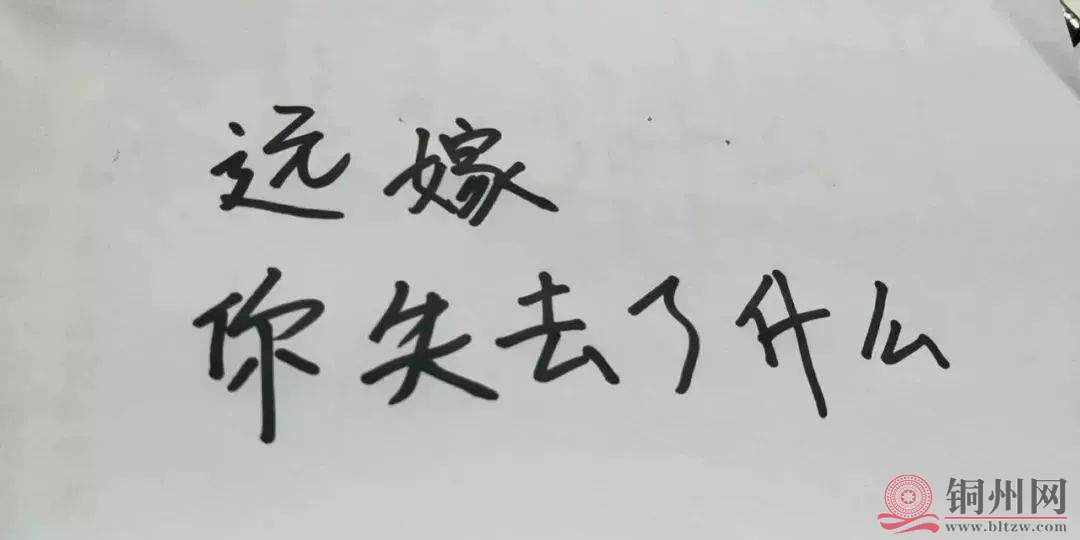 远嫁
你失去了什么
铜州网
www.bltzw.com